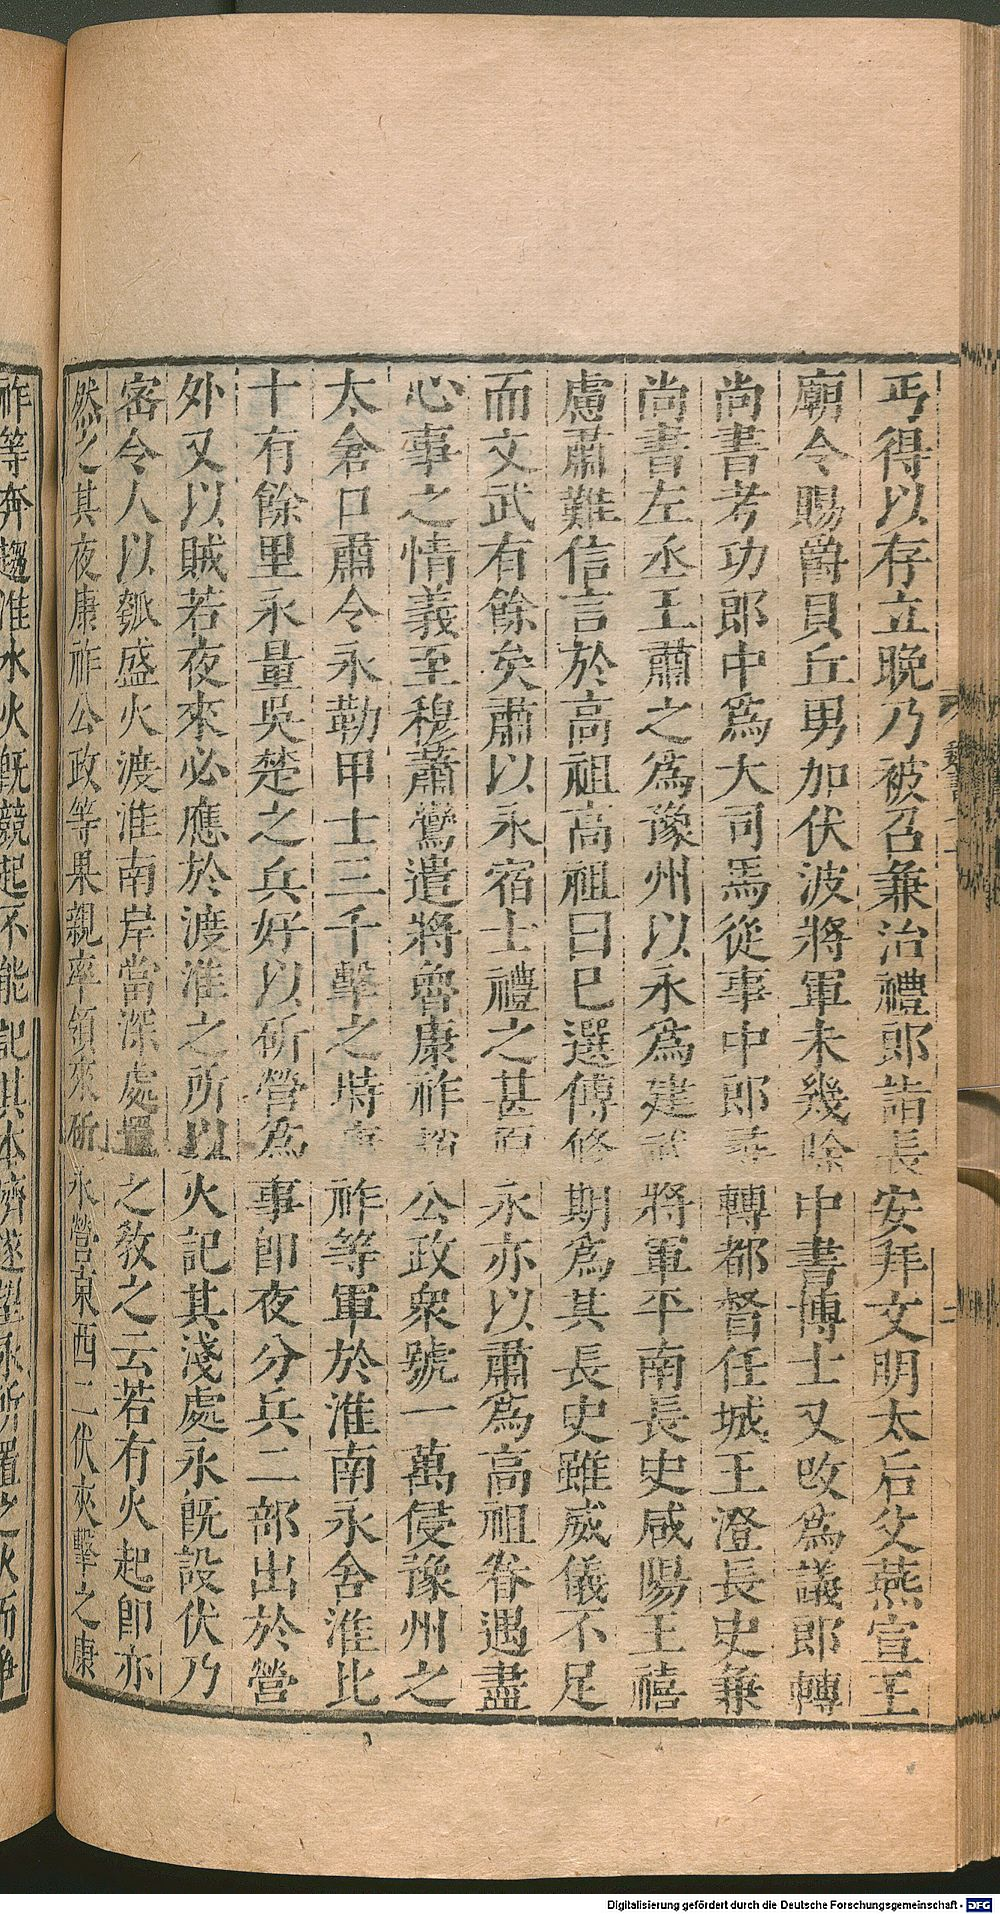 丐得以存立晚乃被召兼治禮郎詣長安拜文明太后父燕宣王
廟令賜爵貝丘男加伏波將軍未幾除中書博士又攺爲議郎轉
尚書考功郎中爲大司馬從事中郎尋轉都督任城王澄長史兼
尚書左丞王肅之爲豫州以永爲建武將軍平南長史咸陽王禧
慮肅難信言於高祖高祖曰巳選傅修期爲其長史雖威儀不足
而文武有餘矣肅以永宿士禮之甚厚永亦以肅爲高祖眷遇盡
心事之情義至穆蕭鸞遣將魯康祚趙公政衆號一萬侵豫州之
太倉口肅令永勒甲士三千擊之時康祚等軍於淮南永舍淮北
十有餘里永量吳楚之兵好以斫營爲事即夜分兵二部出於營
外又以賊若夜來必應於渡淮之所以火記其淺處永旣設伏乃
密令人以瓠盛火渡淮南岸當深處置之敎之云若有火起即亦
然之其夜康祚公政等果親率領來斫永營東西二伏夾擊之康
祚等奔趨淮水火旣競起不能記其本濟遂望永所置之火而爭
Digitalisierung gefördert durch die Deutsche Forschungsgemeinschaft - DFG